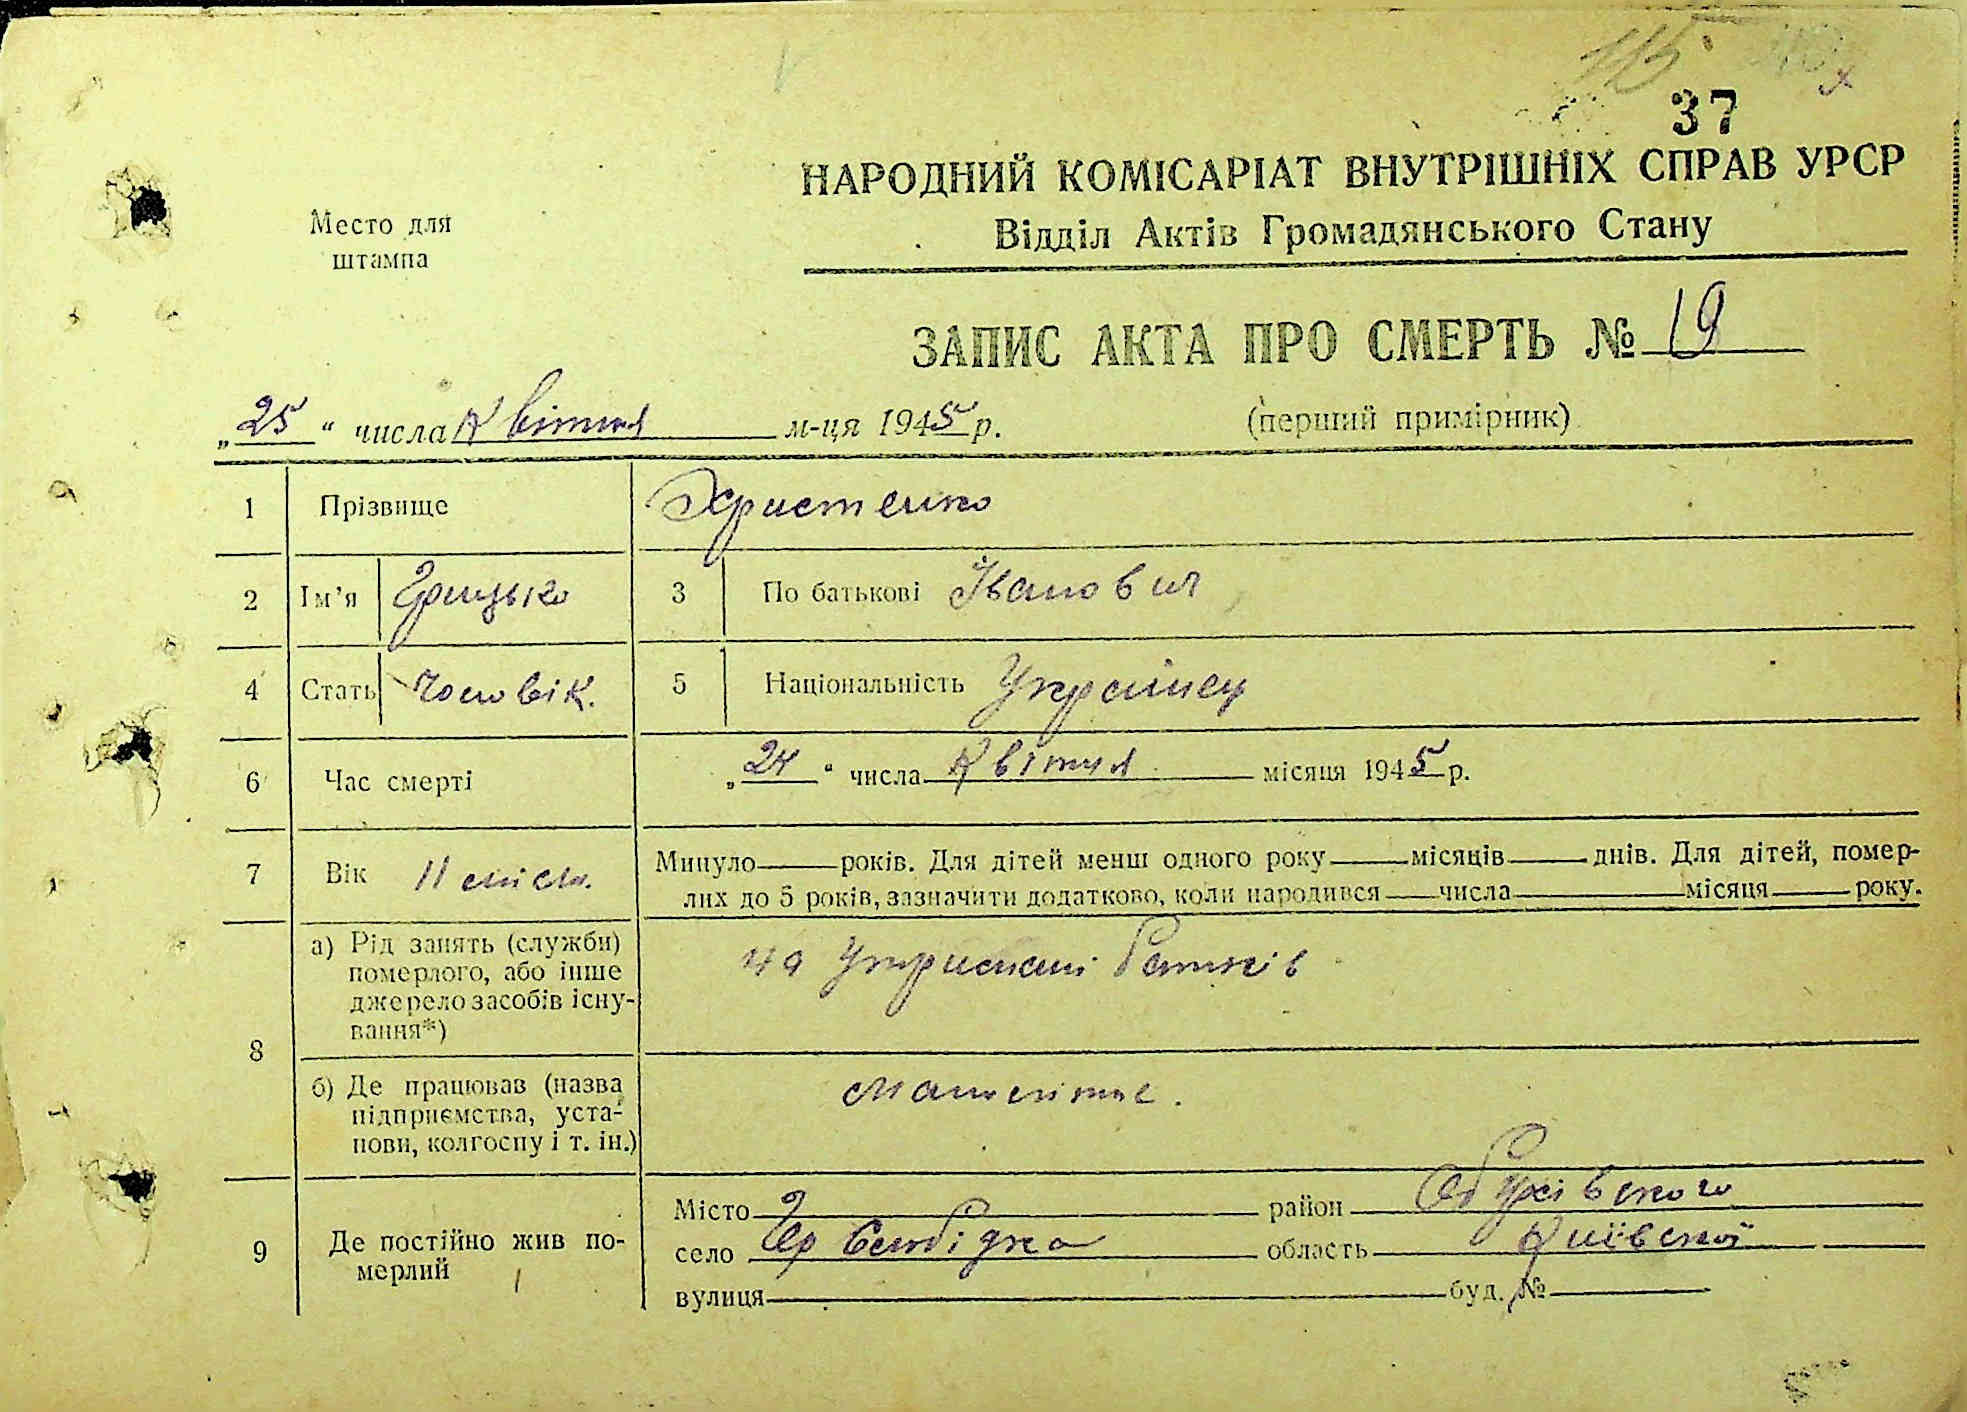 37
НАРОДНИЙ КОМІСАРІАТ ВНУТРІШНІХ СПРАВ УРСР
Место для
штампа
Відділ Актів Громадянського Стану
ЗАПИС АКТА ПРО СМЕРТЬ № 19
„25“ числа Квітня м-ця 1945 р. (перший примірник)
1 Прізвище Христенко
2 Ім'я Грицько 3 По батькові Іванович
4 Стать Чоловік. 5 Національність Українец
6 Час смерті „24“ числа Квітня місяця 1945 р.
7 Вік 11 міся. Минуло — років. Для дітей менш одного року — місяців — днів. Для дітей, помер-
лих до 5 років, зазначити додатково, коли народився — числа — місяця — року.
8 а) Рід занять (служби)
померлого, або інше
джерело засобів існу-
вання*)
на утриманні батьків
б) Де працював (назва
підприємства, уста-
нови, колгоспу і т. ін.)
9 Де постійно жив по-
мерлий
Місто район Обухівського
село Гр область Київської
вулиця буд. №